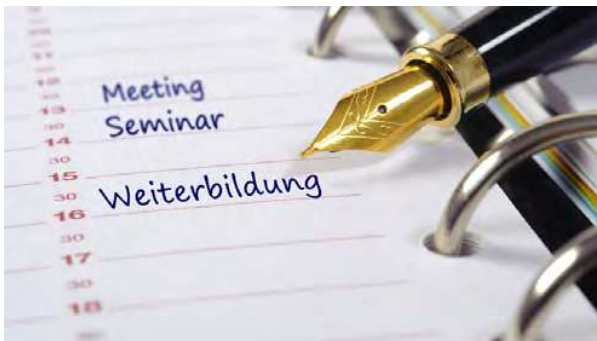 12
Meeting
13
30 Seminar
14
30
15
30 Weiterbildung
16
30
17
30
18